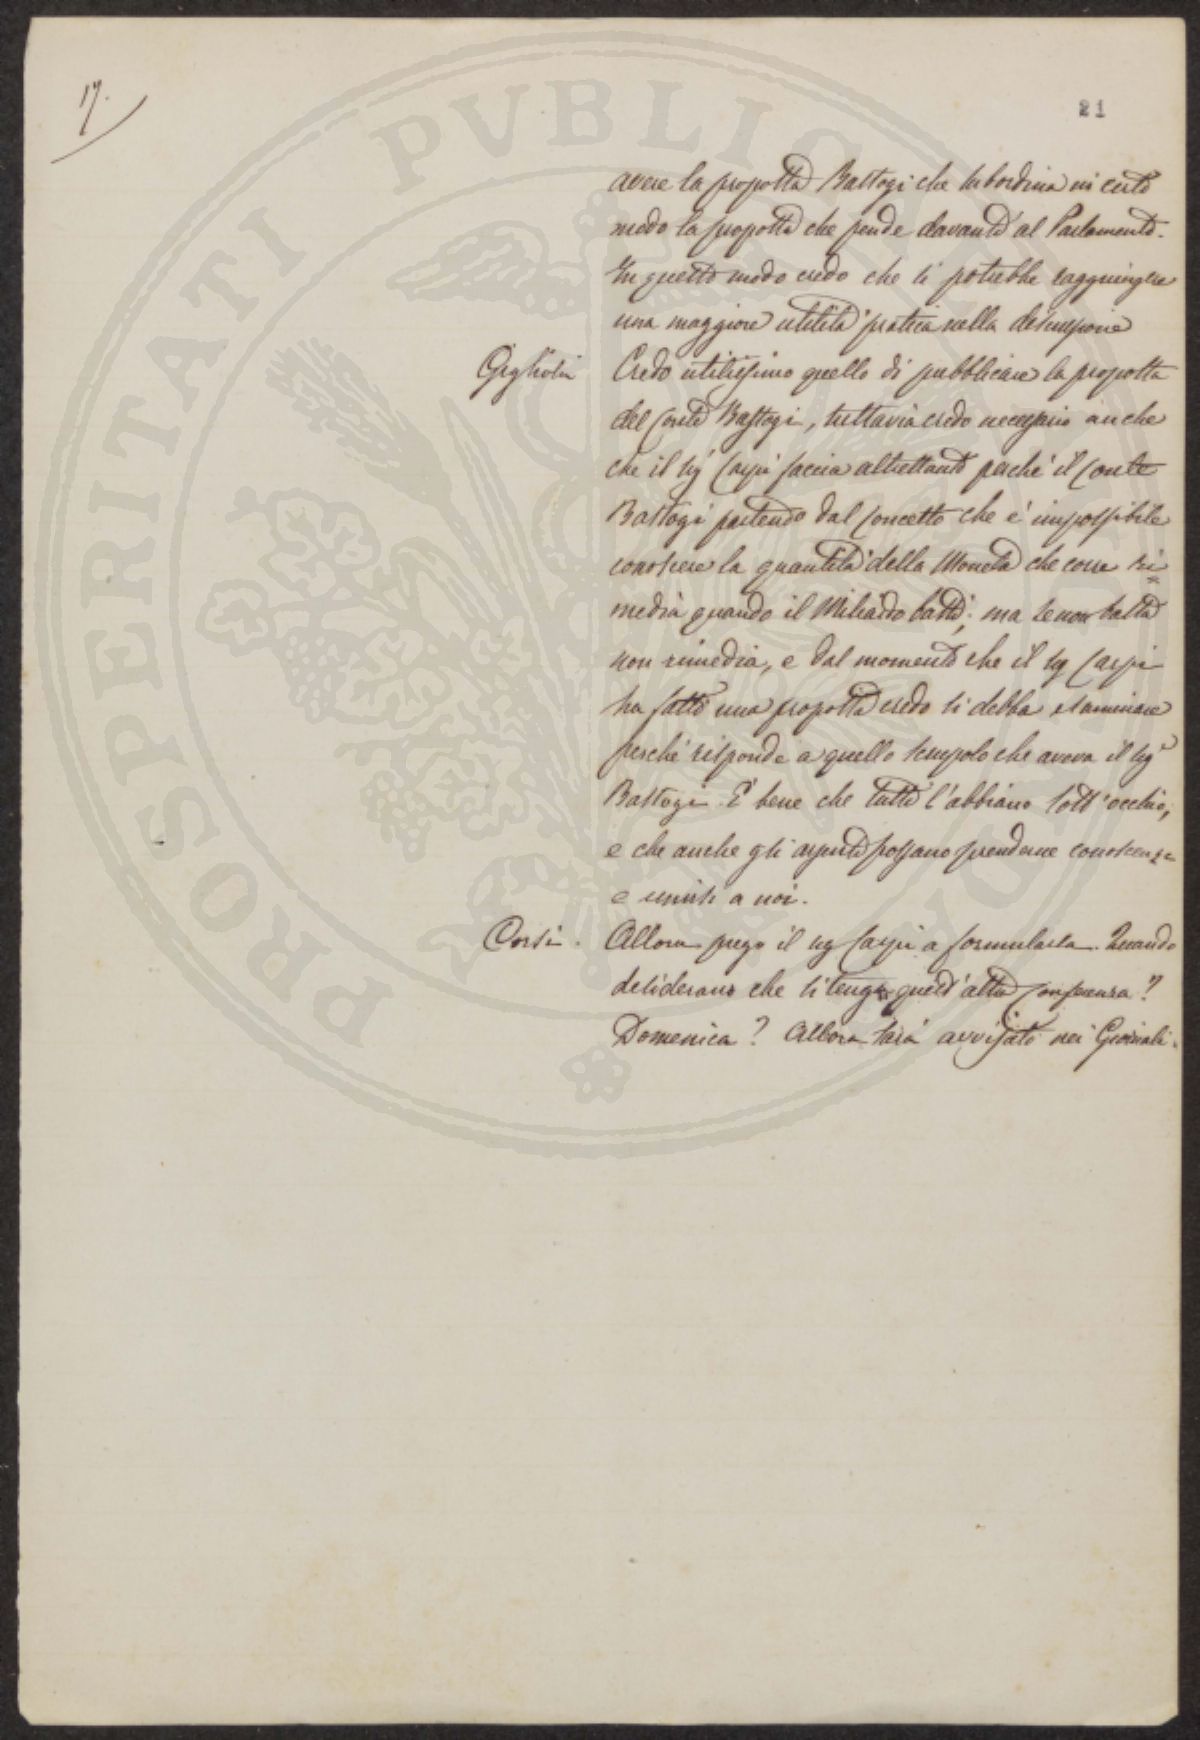 17.
21
avere la proposta Bastogi che subordina in certo
modo la proposta che pende davanti al Parlamento.
In questo modo credo che si potrebbe raggiungere
una maggiore utilità pratica nella discussione
Giglioli Credo utilissimo quello di pubblicare la proposta
del Conte Bastogi, tuttavia credo necessario anche
che il Sig Carpi faccia altrettanto perché il Conte
Bastogi partendo dal concetto che è impossibile
conoscere la quantità della Moneta che corre ri=
media quando il Miliardo basti; ma se non basta
non rimedia, e dal momento che il Sig Carpi
ha fatto una proposta credo si debba esaminare
perché risponde a quello scrupolo che aveva il Sigr
Bastogi. È bene che tutti l'abbiano sott'occhio,
e che anche gli assenti possano prenderne conoscenza
e unirsi a noi.
Corsi. Allora prego il Sig Carpi a formularla. Quando
desiderano che si tenga quest'altra conferenza?
Domenica? Allora sarà avvisato nei Giornali.
PROSPERITATI PUBLICAE